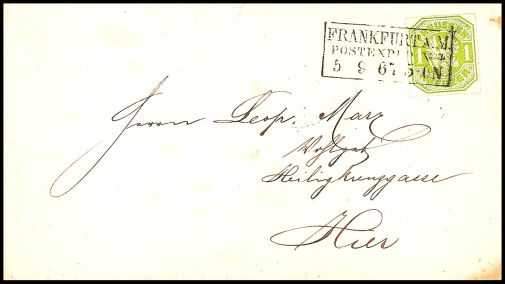 FRANKFURT A.M.
POSTEXP
5 9 67 5-6N
1 1
Herrn Leop. Marx
Wohlgeb
Heiligkreuzgasse
Hier